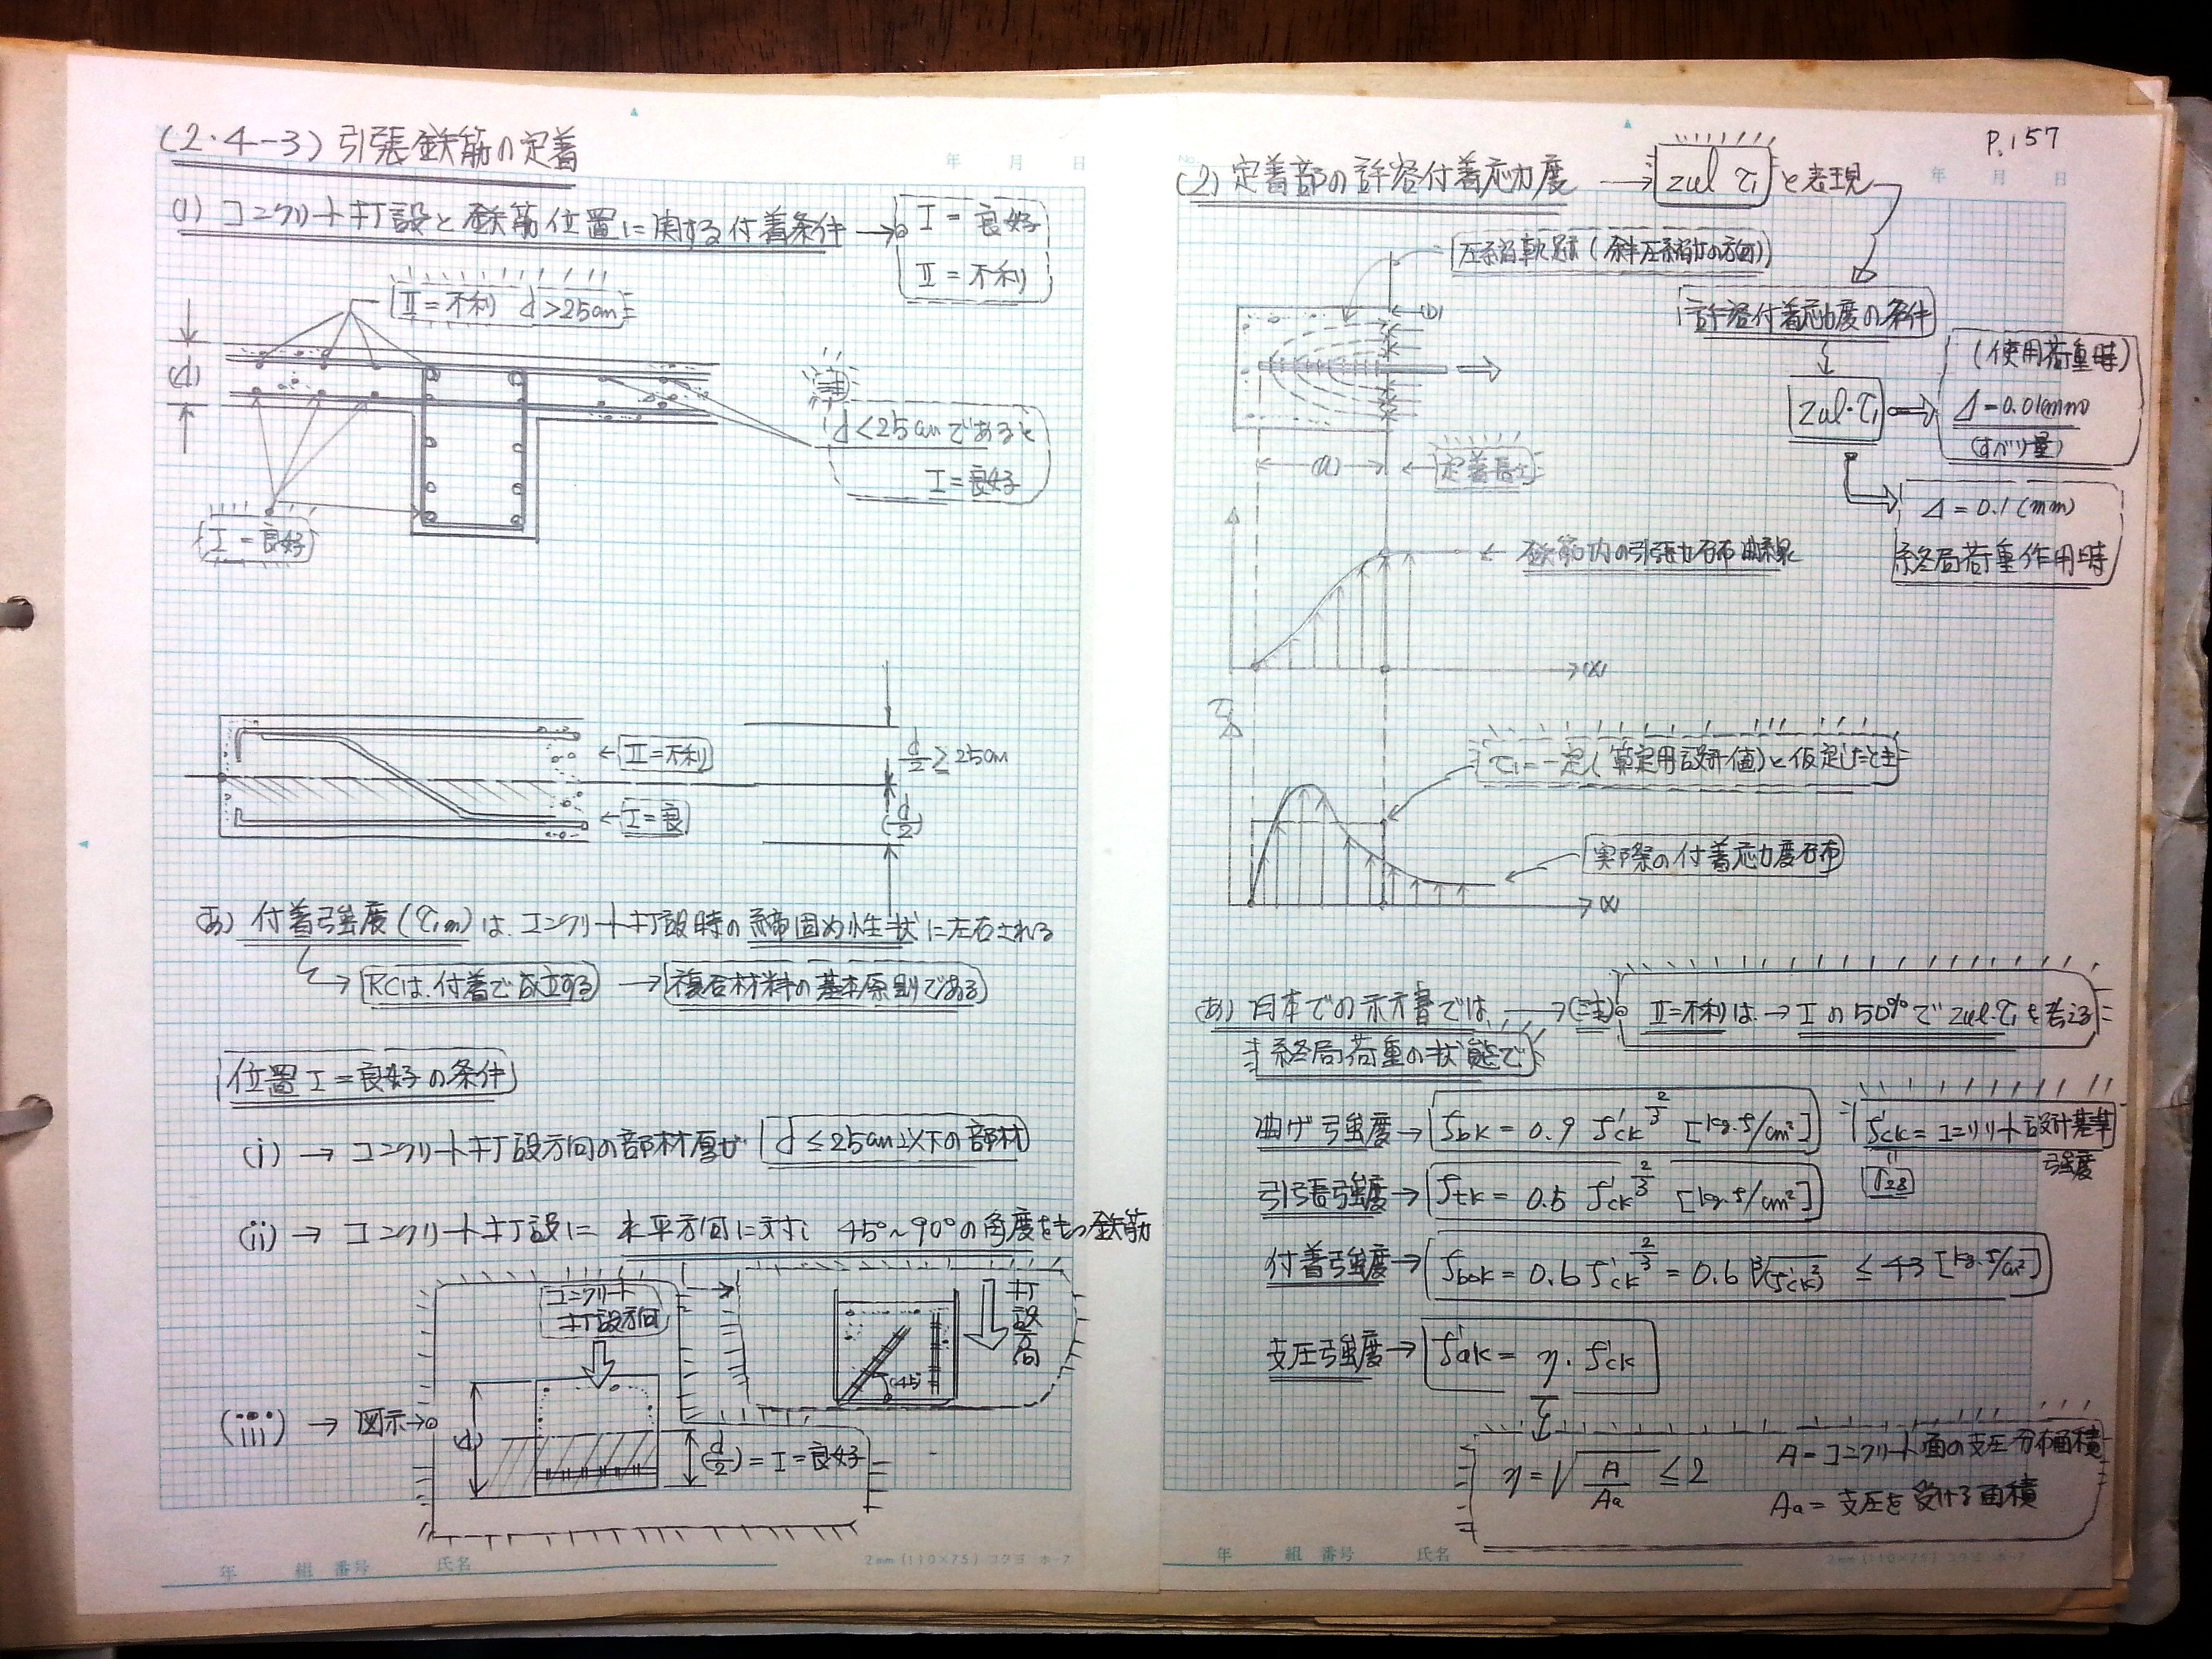 (2・4-3) 引張鉄筋の定着
(1) コンクリート打設と鉄筋位置に関する付着条件 →
I = 良好
II = 不利
II = 不利 d>25cm
(d)
d<25cmであると
I = 良好
I = 良好
II = 不利
I = 良
d/2 ≧ 25cm
(d/2)
(あ) 付着強度(τ1m)は、コンクリート打設時の締固め性状に左右される
→ RCは、付着で成立する → 複合材料の基本原則である
位置 I = 良好の条件
(i) → コンクリート打設方向の部材厚が d ≤ 25cm以下の部材
(ii) → コンクリート打設に水平方向に対し 45°~90°の角度をもつ鉄筋
コンクリート
打設方向
(45)
打設高
(iii) → 図示→
(d)
(d/2) = I = 良好
年 組 番号 氏名
2mm (110×75) コクヨ ホ-7
P.157
年 月 日
年 月 日
(2) 定着部の許容付着応力度 → zul τ1 と表現
圧縮軌跡 (斜圧縮力の方向)
(b)
許容付着応力度の条件
zul・τ1
(使用荷重時)
Δ = 0.01(mm)
(すべり量)
Δ = 0.1 (mm)
終局荷重作用時
(a)
定着長さ
← 鉄筋内の引張力分布曲線
(x)
τ1
τ1 = 一定(算定用設計値)と仮定したとき
実際の付着応力度分布
(x)
(あ) 日本での示方書では、 → (注) II=不利は → I の50%で zul・τ1を考える
終局荷重の状態で
曲げ強度 → fbk = 0.9 f'ck^2/3 [kg・f/cm²]
f'ck = コンクリート設計基準
強度
σ28
引張強度 → ftk = 0.5 f'ck^2/3 [kg・f/cm²]
付着強度 → fbok = 0.6 f'ck^2/3 = 0.6 ∛(f'ck)² ≤ 43 [kg・f/cm²]
支圧強度 → f'ak = η・f'ck
η = √A/Aa ≤ 2
A = コンクリート面の支圧分布面積
Aa = 支圧を受ける面積
年 組 番号 氏名
2mm (110×75) コクヨ ホ-7